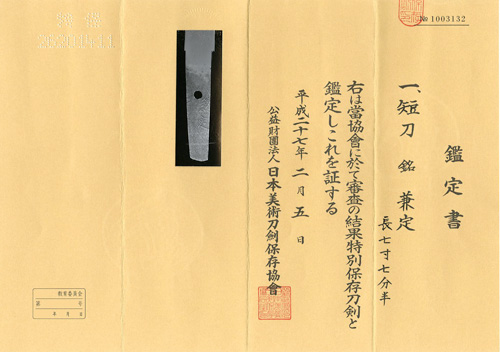 № 1003132
鑑定書
一、短刀 銘 兼定
長七寸七分半
右は當協會に於て審査の結果特別保存刀剣と
鑑定しこれを証する
平成二十七年 二月 五日
公益財團法人 日本美術刀剣保存協會
教育委員会
第 号
年 月 日